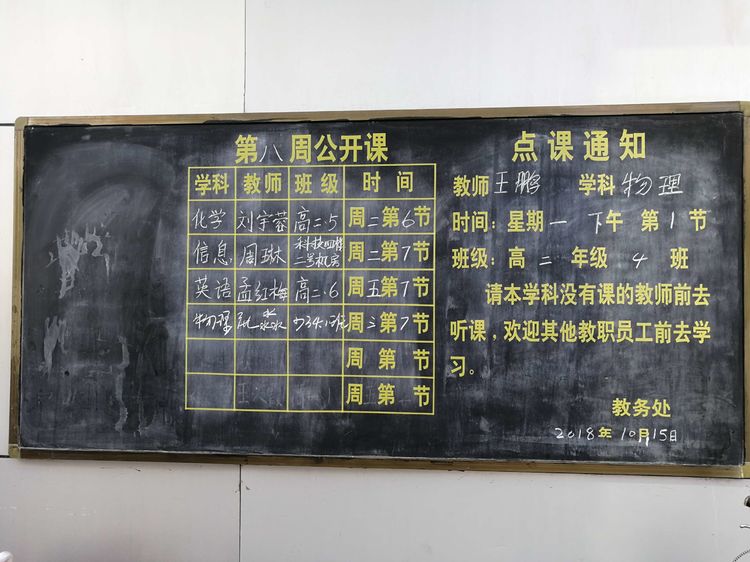 第八周公开课
学科 教师 班级 时间
化学 刘宇蓉 高二·5 周二第6节
信息 周琳 科技四楼二号机房 周二第7节
英语 孟红梅 高二·6 周五第7节
物理 淼 周三第7节
周 第 节
周 第 节
点课通知
教师 王鹏 学科 物理
时间：星期一 下午 第1节
班级：高二年级 4 班
请本学科没有课的教师前去
听课，欢迎其他教职员工前去学
习。
教务处
2018年10月15日